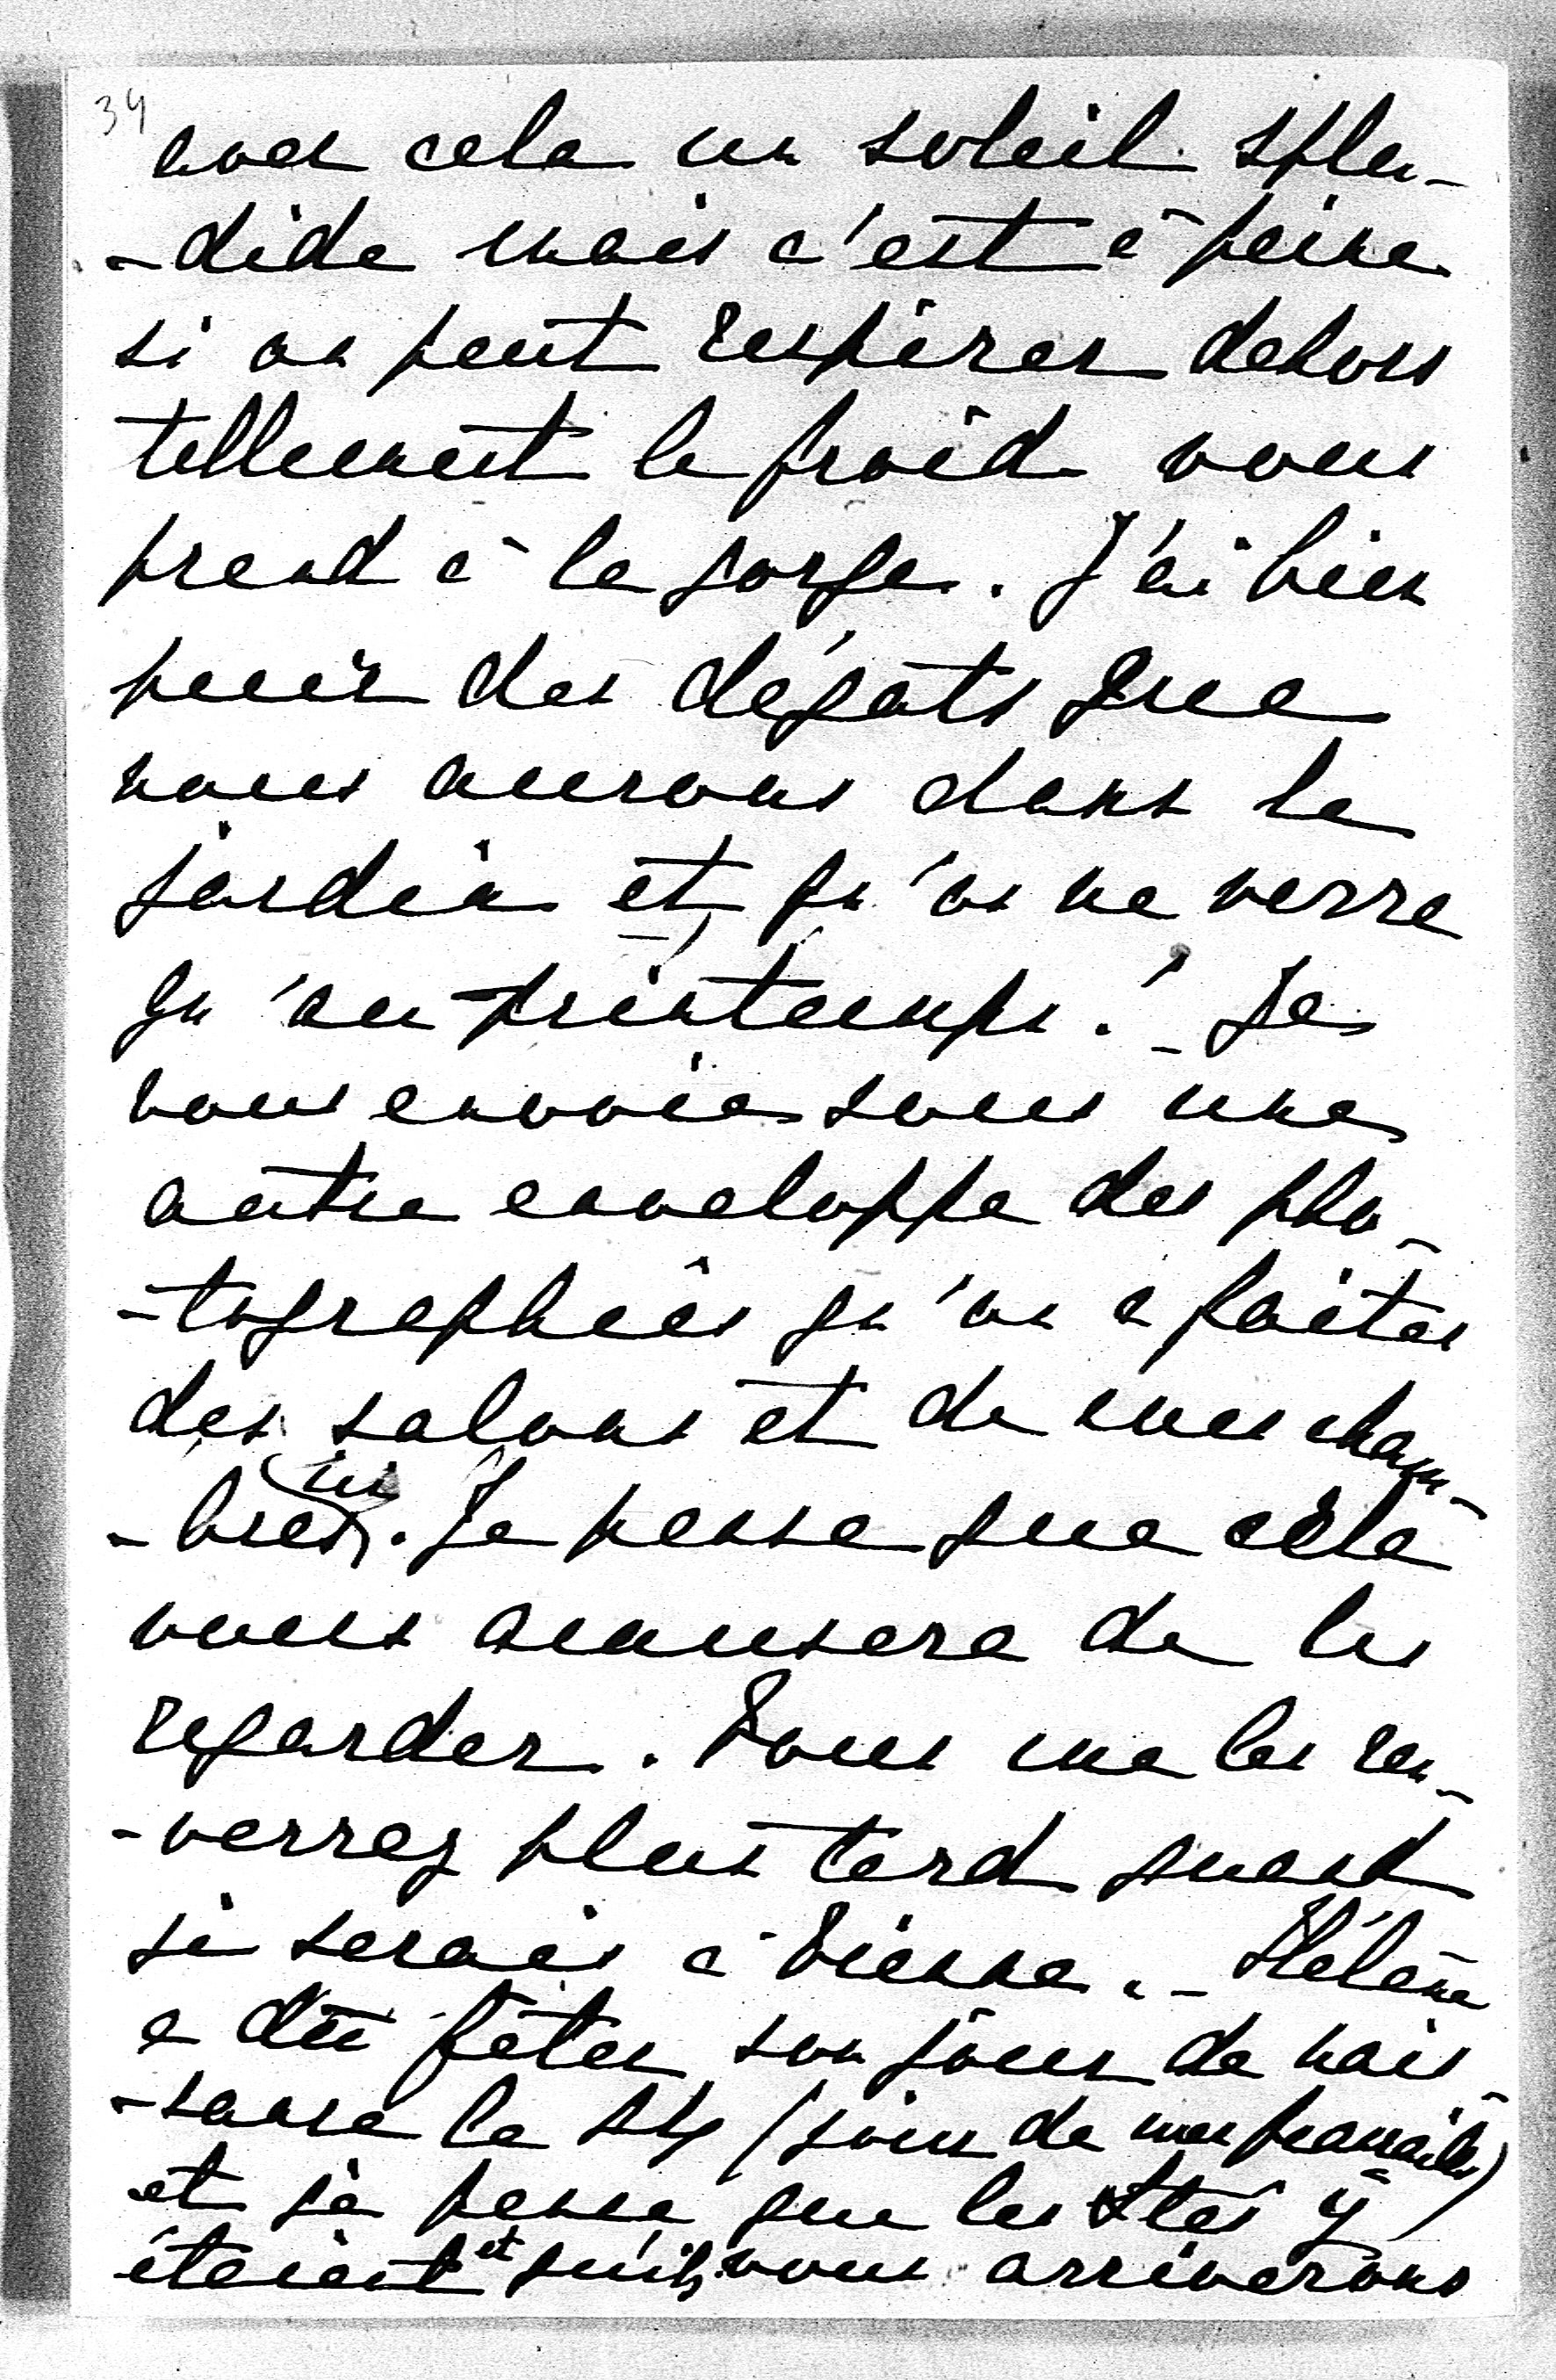 34
avec cela un soleil splen-
-dide mais c'est à peine
si on peut respirer dehors
tellement le froid vous
prend à la gorge. J'ai bien
peur des dégats que
nous aurons dans le
jardin et qu'on ne verra
qu'au printemps! - Je
vous envoie sous une
autre enveloppe des pho-
-tographies qu'on a faites
des salons et de mes cham-
ici
-bres. Je pense que cela
vous amusera de les
regarder. Vous me les ren-
-verrez plus tard quand
je serais à Vienne. - Hélène
a dû fêter son jour de nais-
-sance le 14 (jour de mes fiançailles)
et je pense que les y
étaient et qu'ils vous arriverons